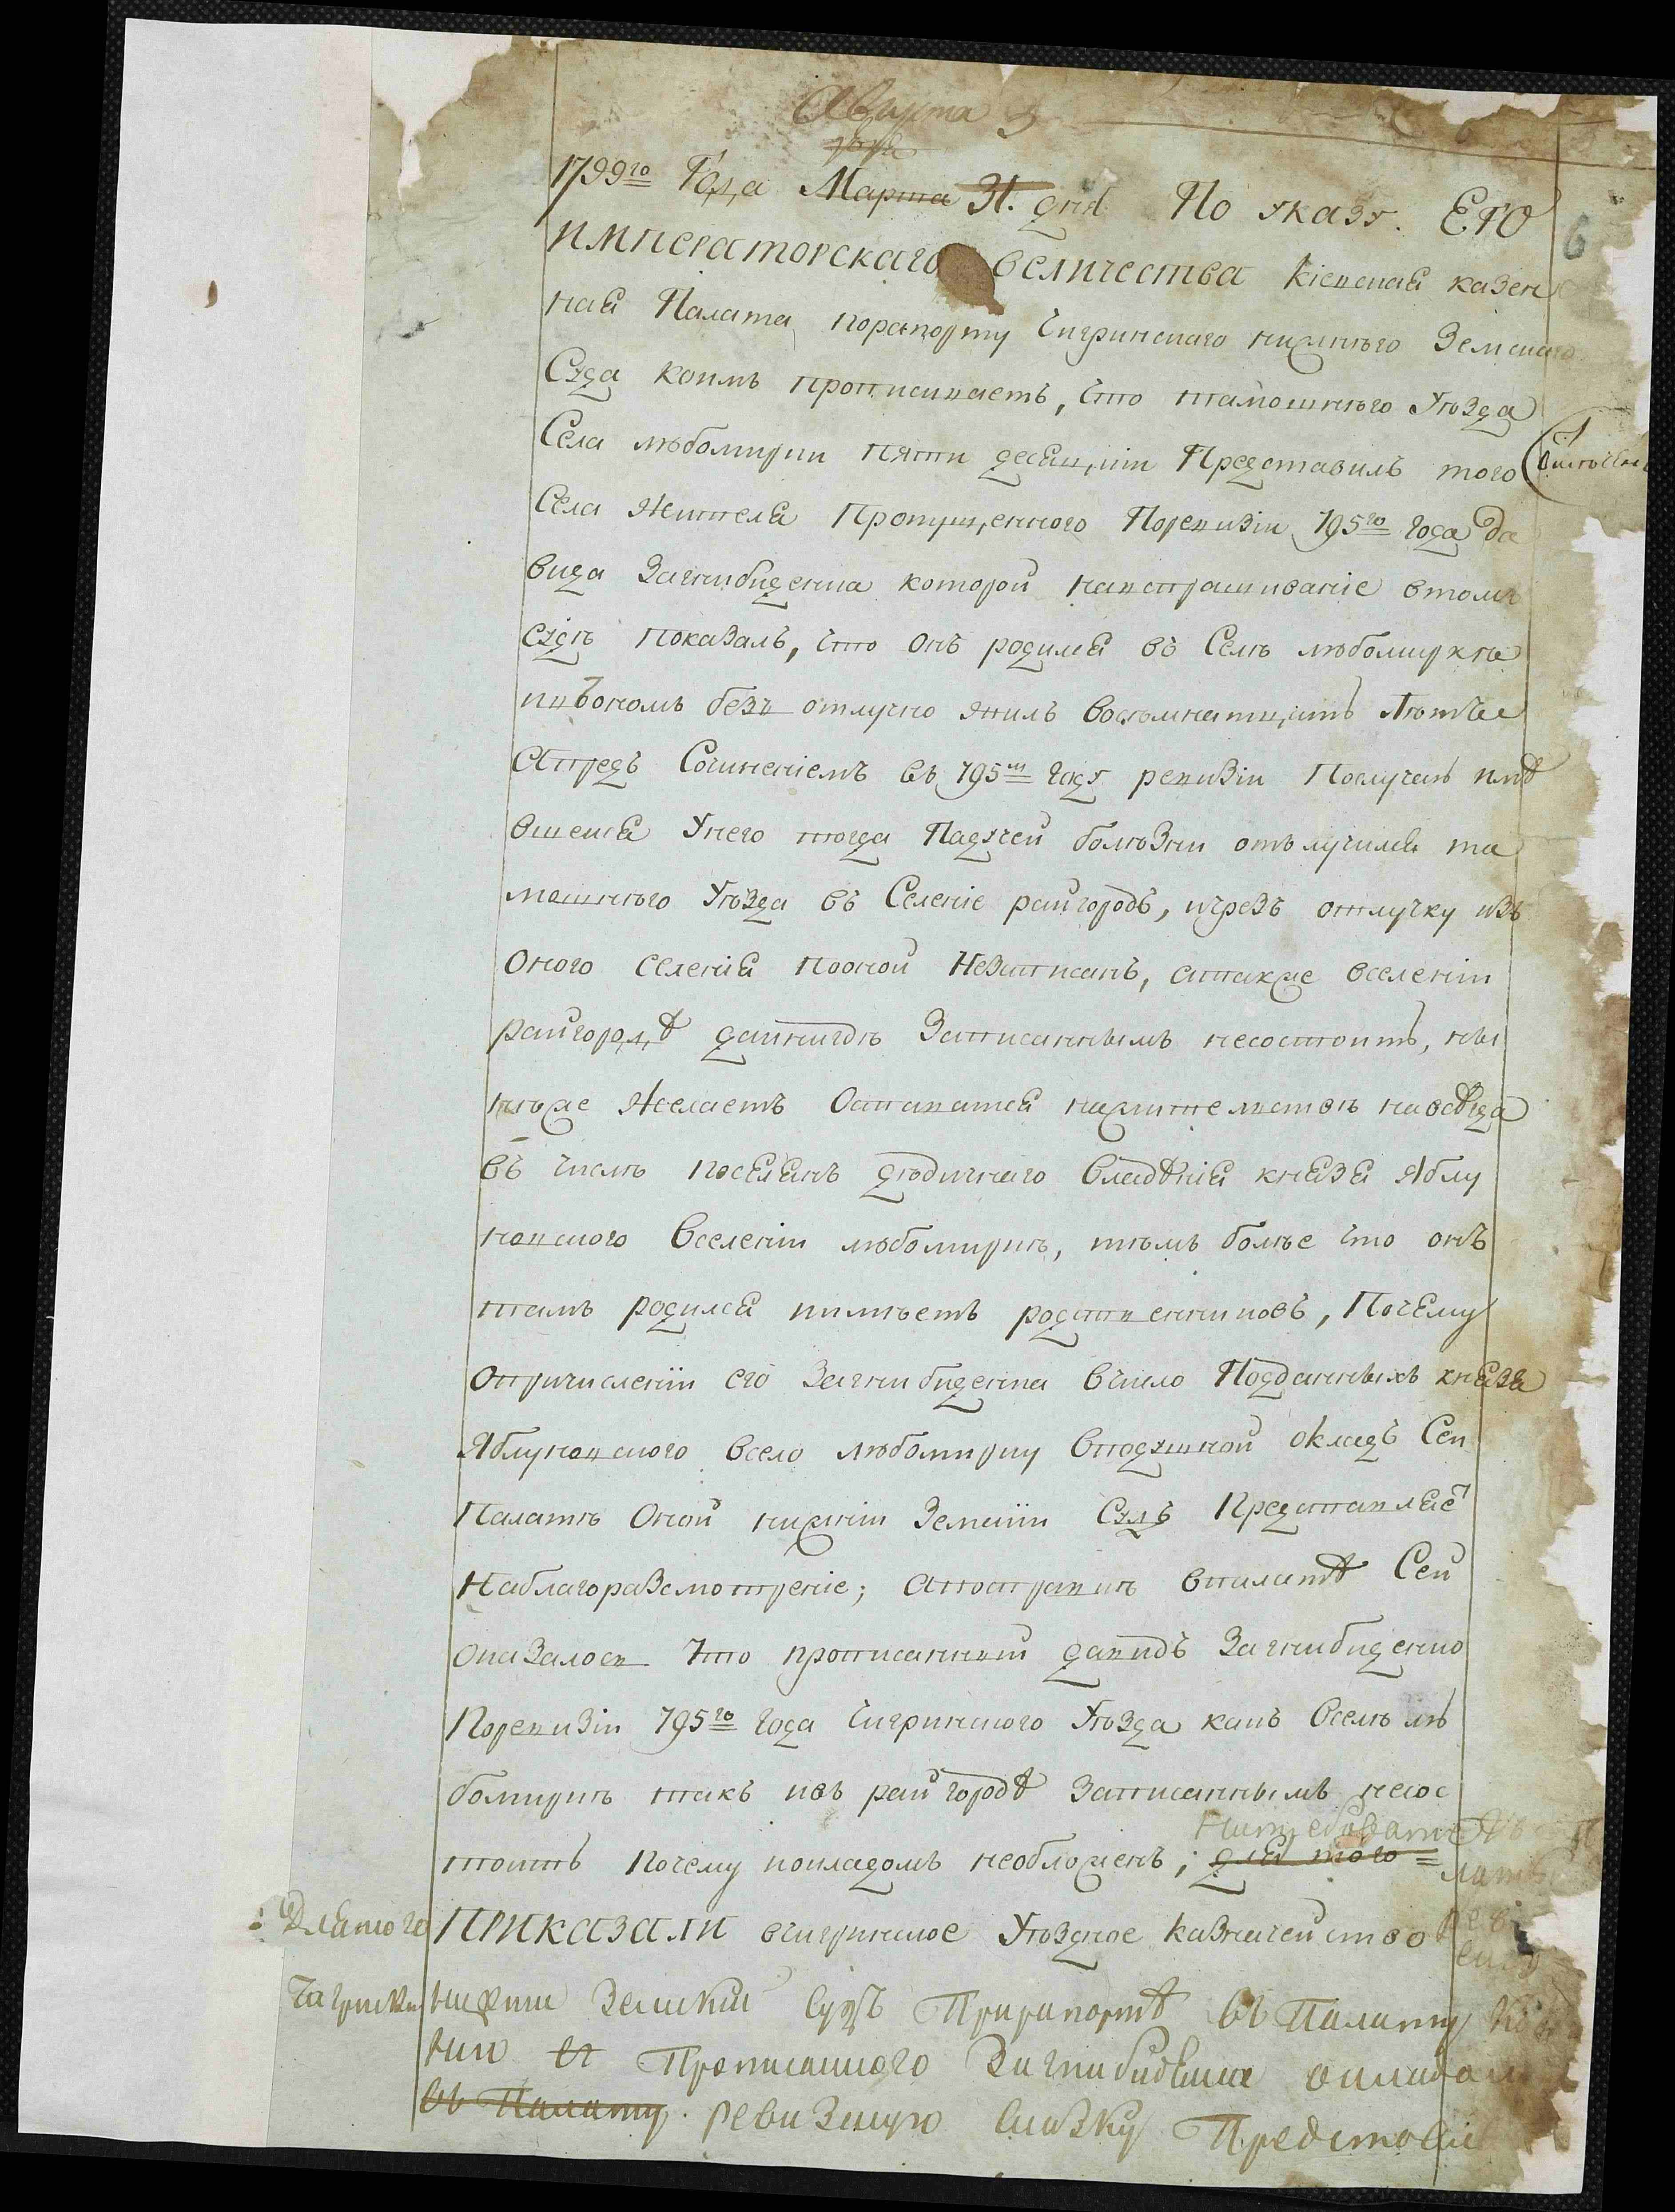 Августа 3
1799го Года Марта 31. дня По указу. ЕГО
императорскаго величества Кіевская казен
ная Палата порапорту Чигринскаго нижнѣго Земскаго
Суда коимъ прописиваетъ, что тамошнѣго Уѣзда
Села любомирки пяти десяцкій Представилъ того
Села жителя Пропущенного Поревизіи 795го Года Да
вида Загнибиденка которой навспрашиваніе втомъ
судѣ показалъ, что онъ родился въ Селѣ любомиркѣ
ивъономъ безъ отлучно жилъ восѣмнатцать лѣтъ
Апредъ Сочиненіемъ въ 795м Году ревизіи Послучаю имѣ
вшейся Унего тогда Падучей болѣзни отълучился та
мошнѣго Уѣзда въ Селеніе райгородъ, ичрезъ отлучку изъ
Оного селенія поoной Незаписанъ, атакже вселеніи
райгородѣ даинигдѣ Записаннымъ несостоитъ, ны
нѣже желаетъ Оставатся нажителствѣ навсѣгда
въ числѣ поселянъ дѣдичнаго владѣнія князя Яблу
новского вселеніи любомиркѣ, тѣмъ болѣе что онъ
тамъ родился иимѣетъ родственниковъ, Почему
Опричисленіи его Загнибиденка вчисло Подданныхъ князя
Яблуновского всело любомирку вподушной окладъ Сей
Палатѣ Оной нижній Земскій Судъ Представляе
Наблагоразсмотреніе; Апосправкѣ впалатѣ Сей
Оказалось Что прописанный давидъ Загнибиденко
Поревизіи 795го Года Чигринского Уѣзда какъ Вселѣ лю
бомиркѣ такъ ивъ райгородѣ Записаннымъ несос
тоитъ почему иокладомъ необложенъ; для того
Для того ПРИКАЗАЛИ вчигринское Уѣздное казначейство
нижній Земскій Судъ Прирапортѣ въ Палату
Прописанного Загнибиденка
въ Палату ревизкую Сказку Представи